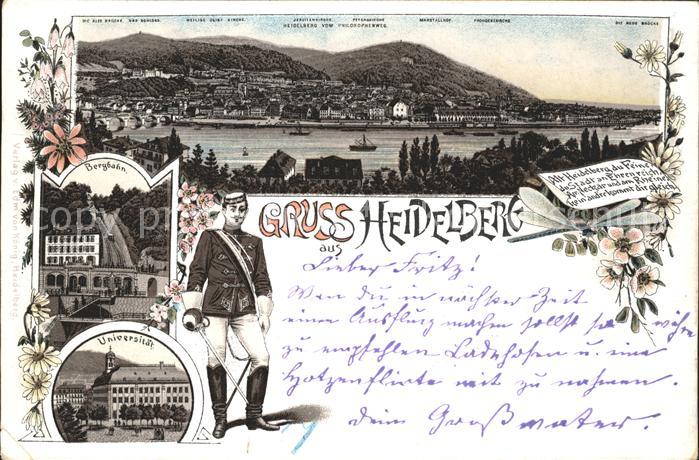 DIE ALTE BRÜCKE, DAS SCHLOSS. HEILIGE GEIST KIRCHE. JESUITENKIRCHE. PETERSKIRCHE MARSTALLHOF. PROVIDENZKIRCHE. DIE NEUE BRÜCKE
HEIDELBERG VOM PHILOSOPHENWEG.
Alt Heidelberg, du Feine
Du Stadt an Ehren reich
Am Neckar und am Rheine
Kein' andre kommt dir gleich
Bergbahn
GRUSS aus HEIDELBERG
Universität
Verlag Edm. von König, Heidelberg
Lieber Fritz!
Wen du in nächster Zeit
einen Ausflug machen sollst so wäre
zu empfehlen Badehosen u. eine
mit zu nehmen.
dein Großvater.